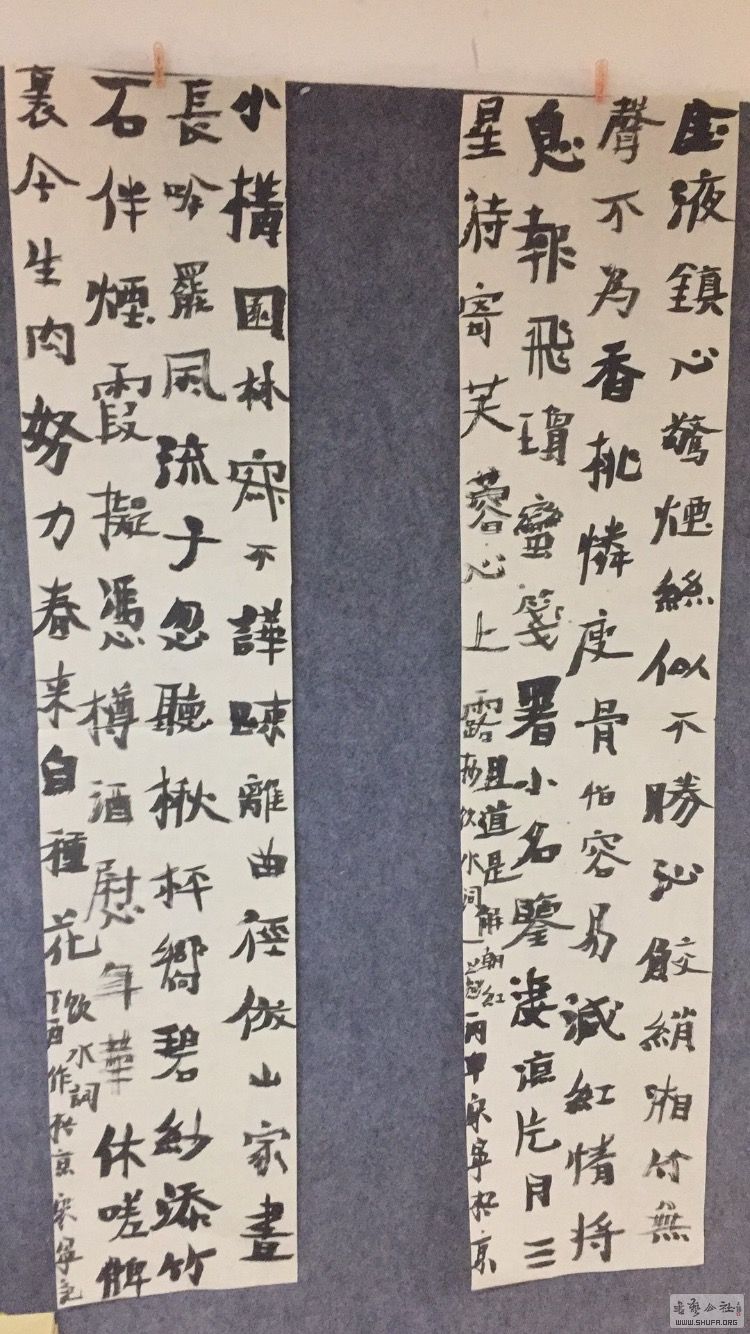 金液鎮心驚煙絲似不勝沁鮫綃湘竹無
聲不為香桃憐瘦骨怕容易減紅情將
息報飛瓊蠻箋署小名鑒淒涼片月三
星待寄芙蓉心上露
且道是解朝
抄饮水词一
丙申宋寧於京
小構園林寂不譁踈離曲徑倣山家晝
長吟罷風流子忽聽楸枰嚮碧紗添竹
石伴煙霞擬憑樽酒慰年華休嗟髀
裏今生肉努力春来自種花
饮水詞
丁酉作於京宋寧
書藝公社
WWW.SHUFA.ORG